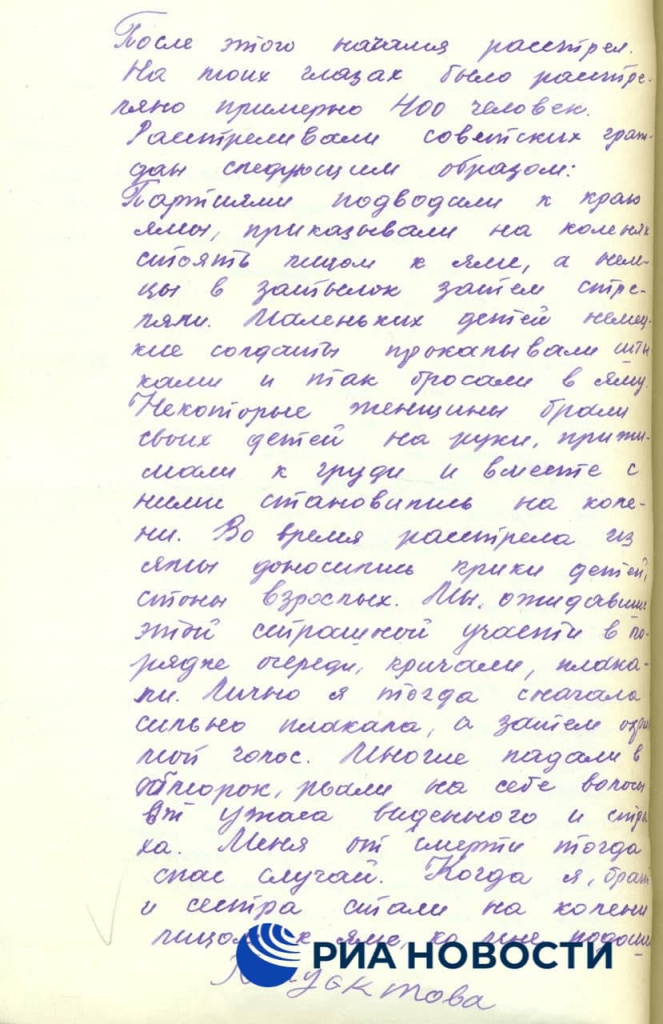 После этого начался расстрел.
На моих глазах было расстре-
ляно примерно 400 человек.
Расстреливали советских граж-
дан следующим образом:
Партиями подводили к краю
ямы, приказывали на коленях
стоять лицом к яме, а нем-
цы в затылок затем стре-
ляли. Маленьких детей немец-
кие солдаты прокалывали шты
ками и так бросали в яму.
Некоторые женщины брали
своих детей на руки, прижи-
мали к груди и вместе с
ними становились на коле-
ни. Во время расстрела из
ямы доносились крики детей,
стоны взрослых. Мы, ожидавшие
этой страшной участи в по-
рядке очереди, кричали, плака-
ли. Лично я тогда сначала
сильно плакала, а затем
мой голос. Многие падали в
обморок, рвали на себе волосы
от ужаса виденного и стра
ха. Меня от смерти тогда
спас случай. Когда я, брат
и сестра стали на колени
лицом к яме, ко мне подошли
РИА НОВОСТИ